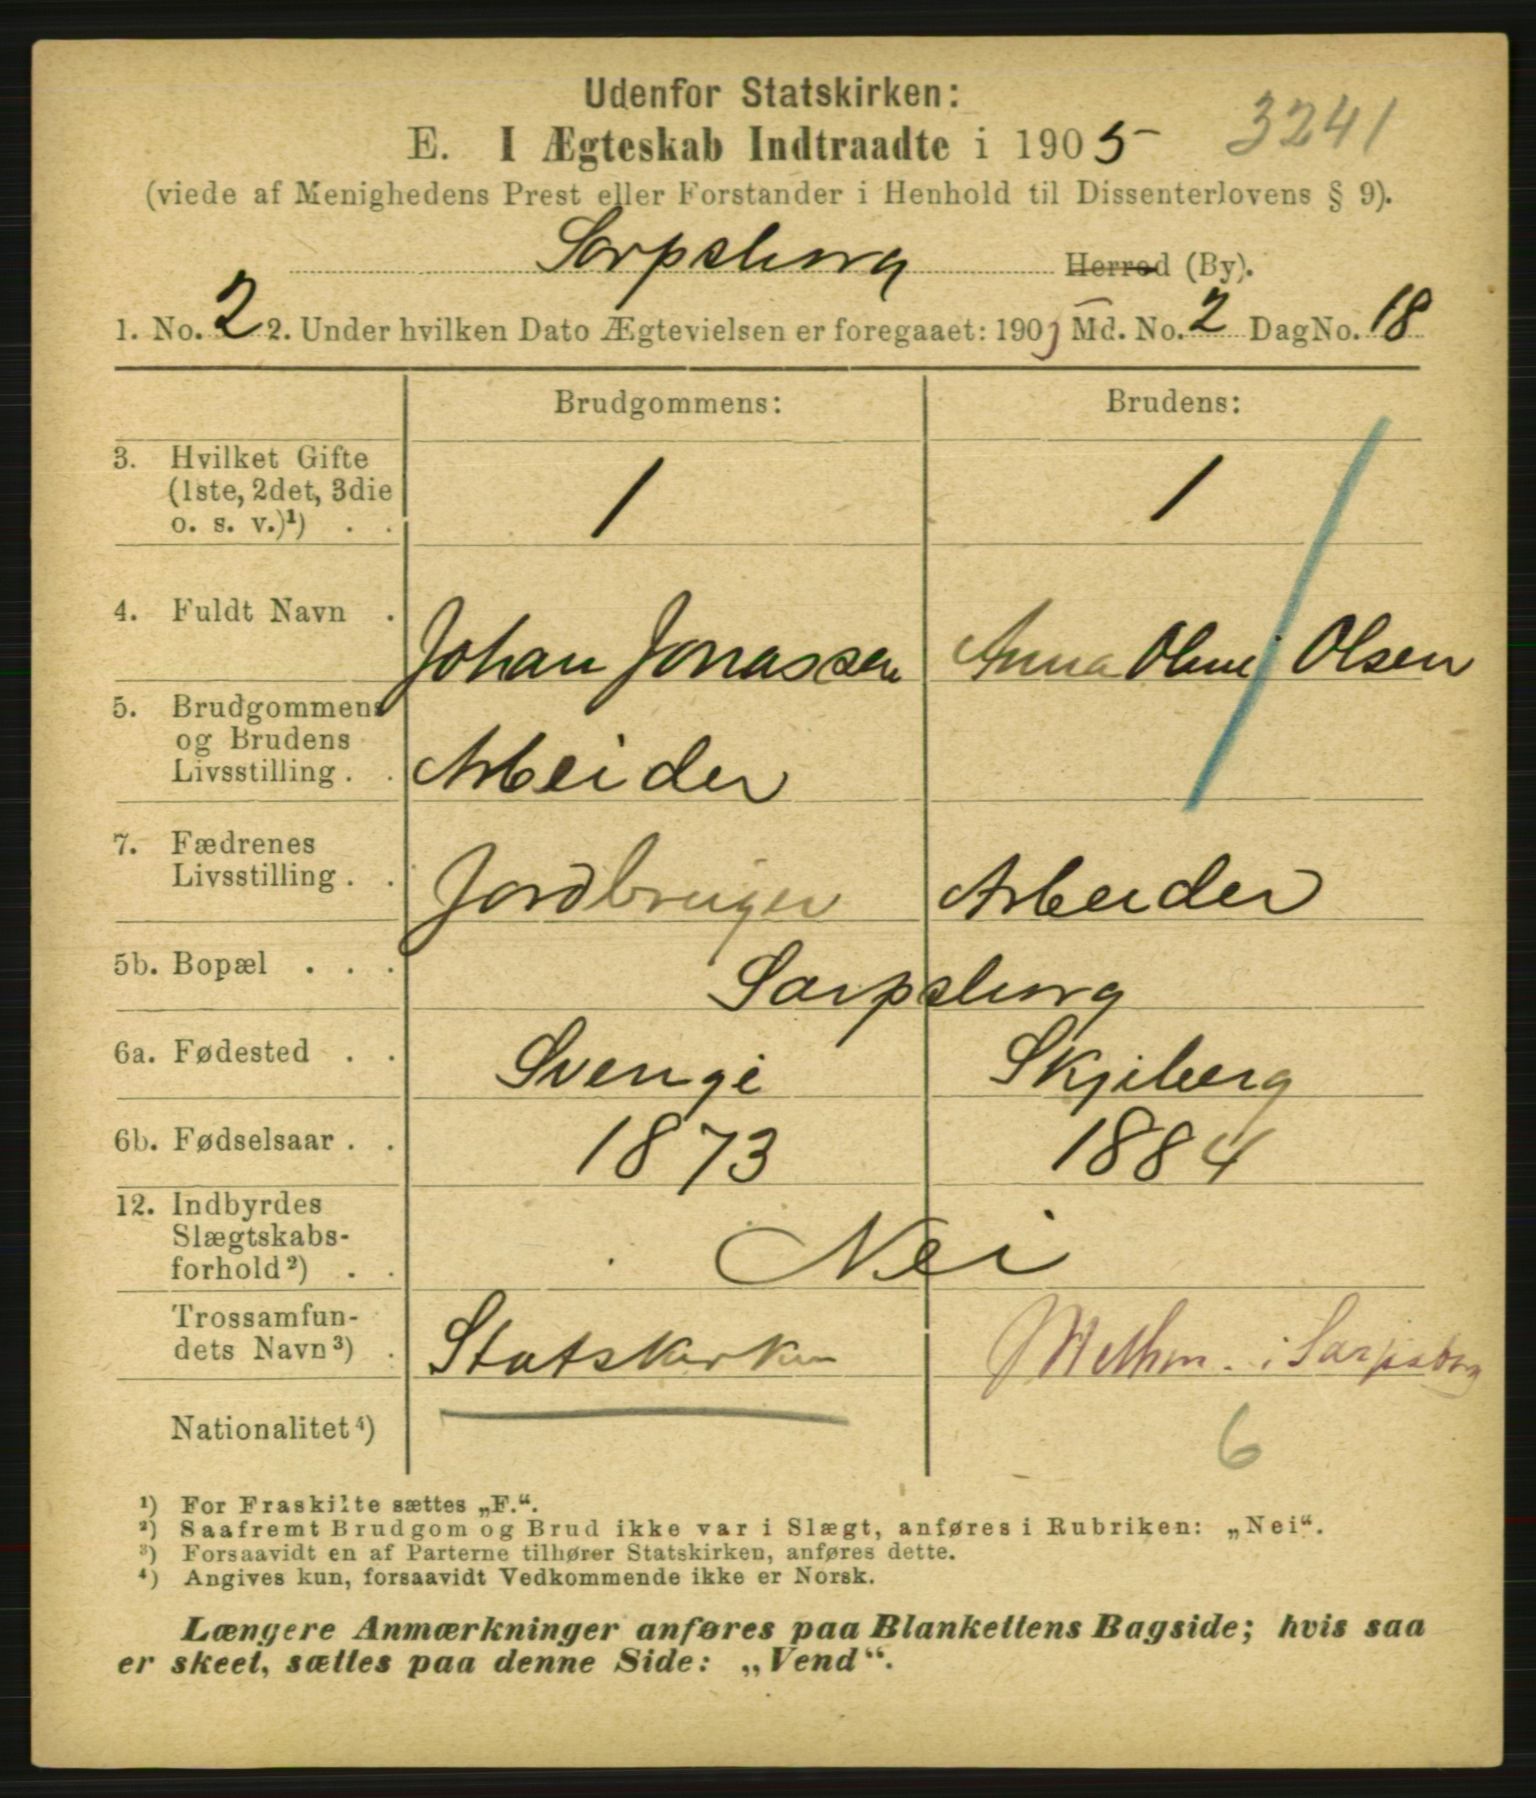 Udenfor Statskirken:
3241
E. I Ægteskab Indtraadte i 1905
(viede af Menighedens Prest eller Forstander i Henhold til Dissenterlovens § 9).
Sarpsborg Herred (By).
1. No. 2 2. Under hvilken Dato Ægtevielsen er foregaaet: 1905 Md. No. 2 Dag No. 18
Brudgommens: Brudens:
3. Hvilket Gifte
(1ste, 2det, 3die 1 1
o. s. v.)¹) . .
4. Fuldt Navn . Johan Jonassen Anna Olsen
5. Brudgommens
og Brudens
Livsstilling . . Arbeider
7. Fædrenes
Livsstilling . . Jordbruger Arbeider
5b. Bopæl . . . Sarpsborg
6a. Fødested . . Sverige Skjeberg
6b. Fødselsaar . . 1873 1884
12. Indbyrdes
Slægtskabs-
forhold²) . . Nei
Trossamfun-
dets Navn³) . Statskirken Methm. i Sarpsborg
Nationalitet⁴)
6
¹) For Fraskilte sættes „F.“.
²) Saafremt Brudgom og Brud ikke var i Slægt, anføres i Rubriken: „Nei“.
³) Forsaavidt en af Parterne tilhører Statskirken, anføres dette.
⁴) Angives kun, forsaavidt Vedkommende ikke er Norsk.
Længere Anmærkninger anføres paa Blankettens Bagside; hvis saa
er skeet, sættes paa denne Side: „Vend“.